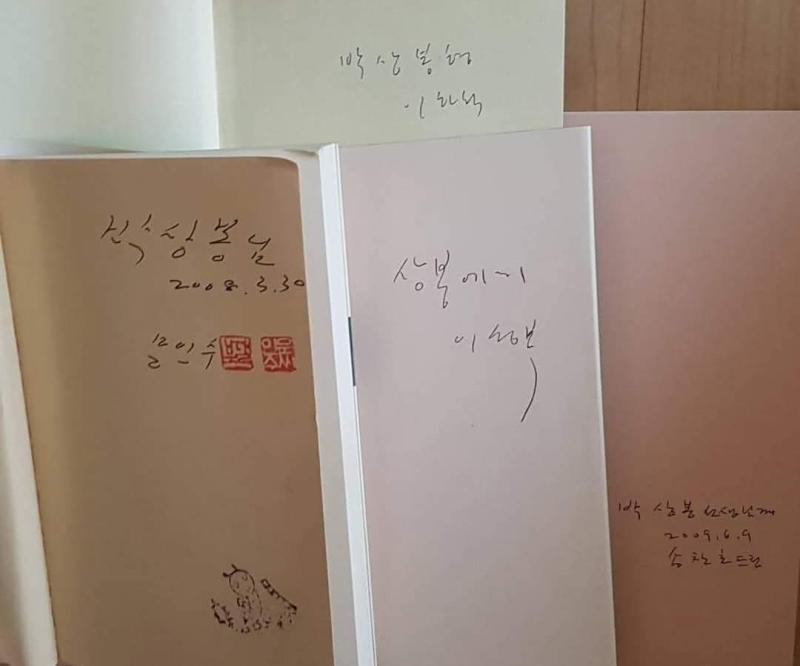 박 상 봉 형
이 하석
상 봉 님
2008.3.30
문 인 수
상봉에게
박 상봉 선생님께
2009.6.9
송찬호 드림